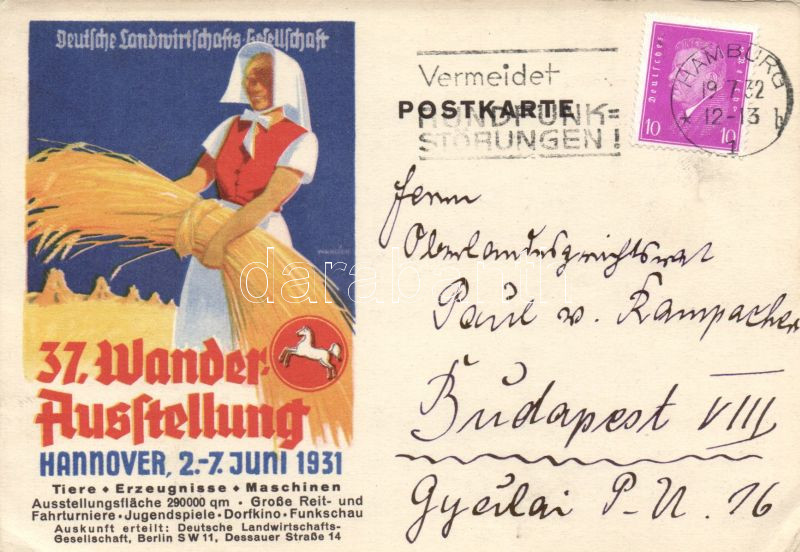 Deutsche Landwirtschafts-Gesellschaft
37. Wander-
Ausstellung
HANNOVER, 2.-7. JUNI 1931
Tiere • Erzeugnisse • Maschinen
Ausstellungsfläche 290000 qm • Große Reit- und
Fahrturniere • Jugendspiele • Dorfkino • Funkschau
Auskunft erteilt: Deutsche Landwirtschafts-
Gesellschaft, Berlin SW 11, Dessauer Straße 14
Vermeidet
POSTKARTE
RUNDFUNK=
STÖRUNGEN!
Deutsches Reich
10 10
HAMBURG
19.7.32
* 12-13 b
1
Herrn
Oberlandesgerichtsrat
Paul v. Kampacher
Budapest VIII
P-U. 16